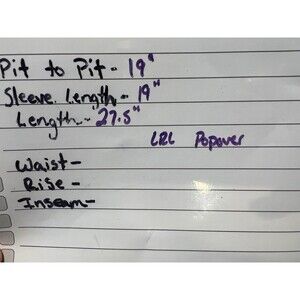 Pit to Pit - 19"
Sleeve Length - 19"
Length - 27.5"
LRL Popover
Waist -
Rise -
Inseam -